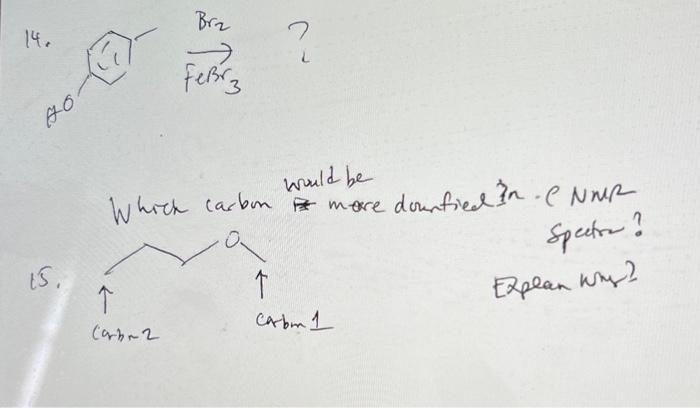 14.
Br2
FeBr3
?
HO
would be
Which carbon more downfied in C NMR
Spectra?
15.
Carbon 2
Carbon 1
Explean Why?